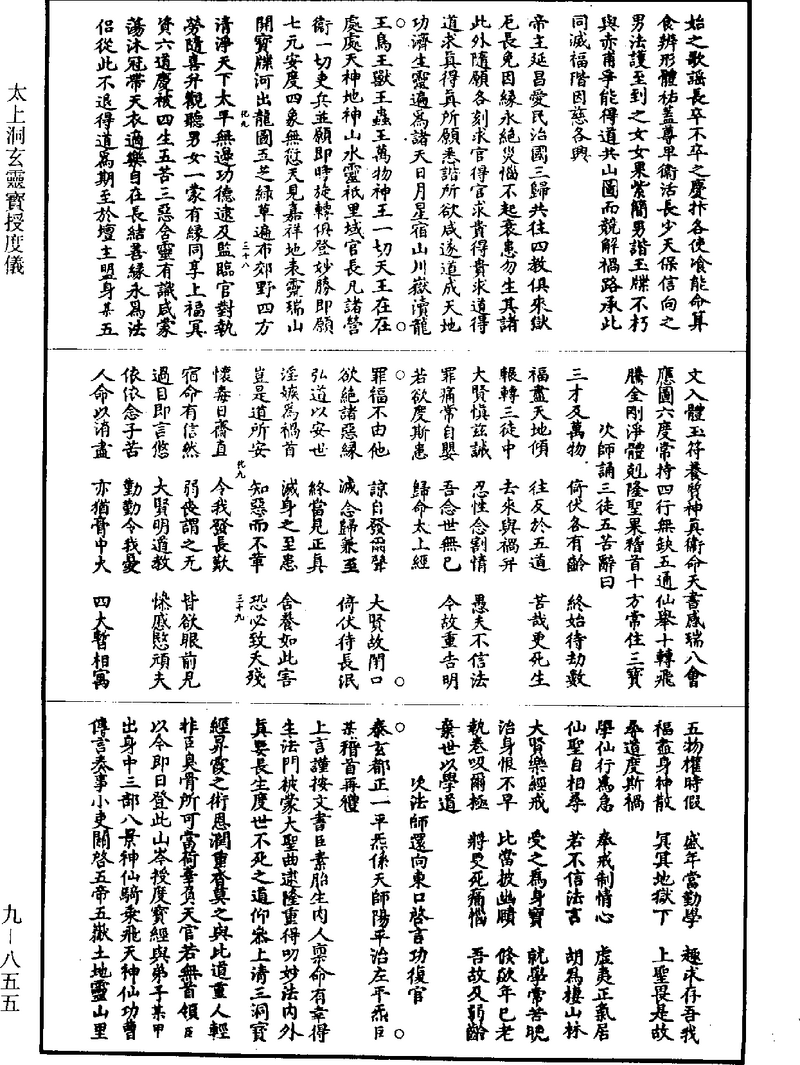 始之歌謡長卒不卒之慶抃各使飡能命算
食辨形體祐蓋尊卑衛活長少天保信向之
男法護至到之女女果紫簡男諧玉牒不朽
與亦甫爭能得道共山圖而競解禍路承此
同滅福階因慈各興
帝主延昌愛民治國三歸共往四教俱來獄
厄長免因緣永絶災惱不起衰患勿生其諸
此外隨願各刻求官得官求貴得貴求道得
道求真得真所願悉諧所欲咸遂道成天地
功濟生靈遍爲諸天日月星宿山川嶽瀆龍
王鳥王獸王蟲王萬物神王一切天王在在
處處天神地神山水靈祇里域官長凡諸營
衛一切吏兵並願即時旋轉俱登妙勝即願
七元安度四象無愆天見嘉祥地表靈瑞山
開寶牒河出龍圖五芝緑草遍布郊野四方
清淨天下太平無邊功德逮及監臨官對執
勞隨喜升觀聽男女一蒙有緣同享上福冥
資六道慶被四生五苦三惡含靈有識咸蒙
蕩沐冠帶天衣適樂自在長結善緣永爲法
侣從此不退得道爲期至於壇主盟身某五
文入體玉符養質神真衛命天書感瑞八會
應圖六度常持四行無缺五通仙舉十轉飛
騰金剛淨體剋隆聖果稽首十方常住三寶
次師誦三徒五苦辭曰
三才及萬物 倚伏各有齡 終始待劫數
福盡天地傾 往反於五道 苦哉更死生
輾轉三徒中 去來與禍并 愚夫不信法
大賢慎兹誡 忍性念割情 令故重告明
罪痛常自嬰 吾念世無已
若欲度斯患 歸命太上經
罪福不由他 諒自發爾聲 大賢故閉口
欲絶諸惡緣 滅念歸兼至 倚伏待長泯
弘道以安世 終當見正真
淫嫉爲禍首 滅身之至患 舍養如此害
豈是道所安 知惡而不革 恐必致夭殘
懷毒日齋直 令我發長歎
宿命有信然 弱喪謂之无 皆欲眼前見
過目即言悠 大賢明道教 慘慼愍頑夫
依依念子苦 勤勤令我憂
人命以消盡 亦猶膏中火 四大暫相寓
五物權時假 盛年當勤學 趣求存吾我
福盡身神散 冥冥地獄下 上聖畏是故
尋道度斯禍
學仙行爲急 奉戒制情心 虚夷正氣居
仙聖自相尋 若不信法言 胡爲棲山林
大賢樂經戒 受之爲身寶 就學常苦晚
治身恨不早 比當披幽賾 倏欻年已老
執卷吸爾極 將更死痛惱 吾故及弱齡
棄世以學道
次法師還向東口啓言功復官
泰玄都正一平炁係天師陽平治左平炁臣
某稽首再禮
上言謹按文書臣素胎生内人禀命有幸得
生法門被蒙大聖曲逮隆重得叨妙法内外
真要長生度世不死之道仰參上清三洞寶
經昇霞之術恩潤重沓莫之與比道重人輕
抃臣臭骨所可當荷辜負天官若無首領臣
以今即日登此山岑授度寶經與弟子某甲
出身中三部八景神仙騎乘飛天神仙功曹
傳言奏事小吏關啓五帝五嶽土地靈山里
太上洞玄靈寶授度儀
九—八五五